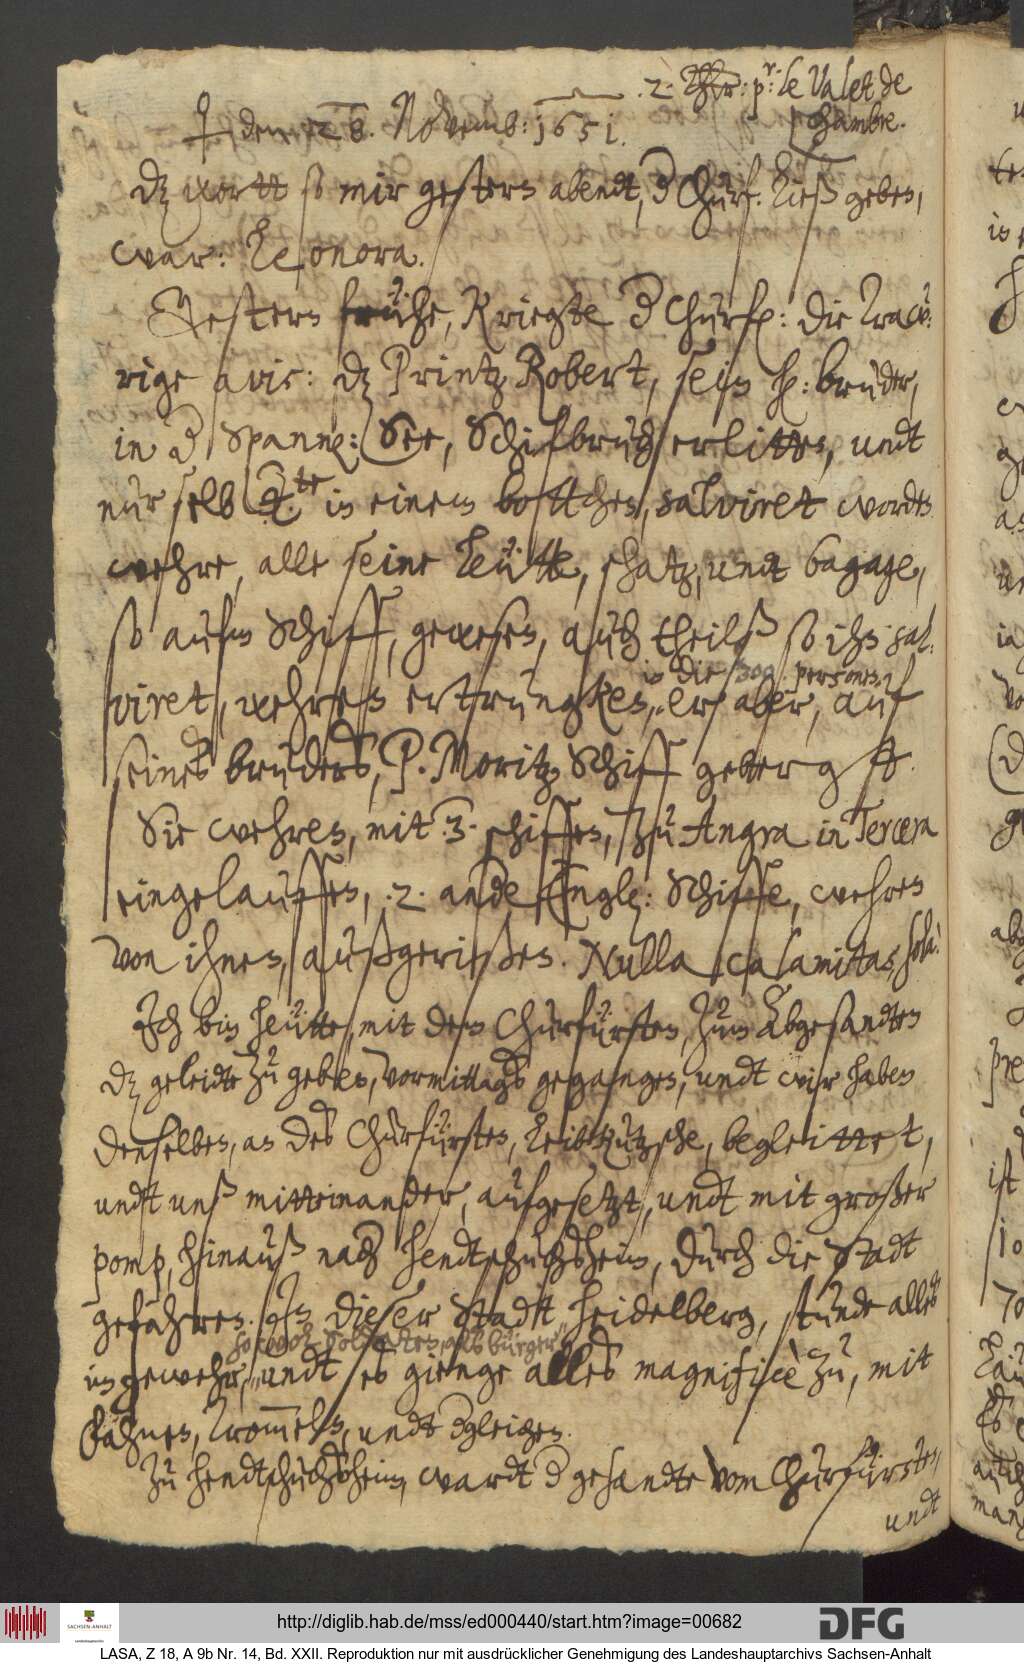 .2. Thlr: pr: le Valet de
chambre.
♀ den 28. Novemb: 1651.
dz wortt so mir gestern abendt, d Churf. ließ geben,
war: Leonora.
Gestern frühe, kriegte d Churf: die traw¬
rige avis: dz Printz Robert, sein h: bruder,
in d Spann: See, Schifbruch erlitten, undt
nur selb te in einem bottchen, salviret worden
wehre, alle seine Leütte, schatz, undt bagage,
so aufm Schiff, gewesen, auch theilß so ihn sal¬
viret, wehren ertruncken, er aber, auf
in die 300 personen
seines bruders, P. Moritz Schiff geberg
Sie wehren, mit .3. schiffen, zu Angra in Tercera
eingelauffen, .2. andre Engl: Schiffe, wehren
von ihnen, außgerißen. Nulla calamitas sola!
Ich bin heütte, mit dem Churfürsten, zum Abgesandten
dz geleidte zu geben, vormittags gegangen, undt wir haben
denselben, an des Churfürsten, Leibkutzsche, begleittet,
undt unß mitteinander, aufgesetzt, undt mit großer
pomp, hinauß nach Hendtschuchsheim, durch die Stadt
gefahren. In dieser Stadtt, Heidelberg, stunde alles
so wol Soldaten, als bürger
im gewehr, undt es gienge alles magnificè zu, mit
Fahnen, Trommeln, undt dgleichen.
Zu Hendtschuchsheim, wardt d gesandte vom Churfürsten,
undt
http://diglib.hab.de/mss/ed000440/start.htm?image=00682
DFG
SACHSEN-ANHALT
LASA, Z 18, A 9b Nr. 14, Bd. XXII. Reproduktion nur mit ausdrücklicher Genehmigung des Landeshauptarchivs Sachsen-Anhalt